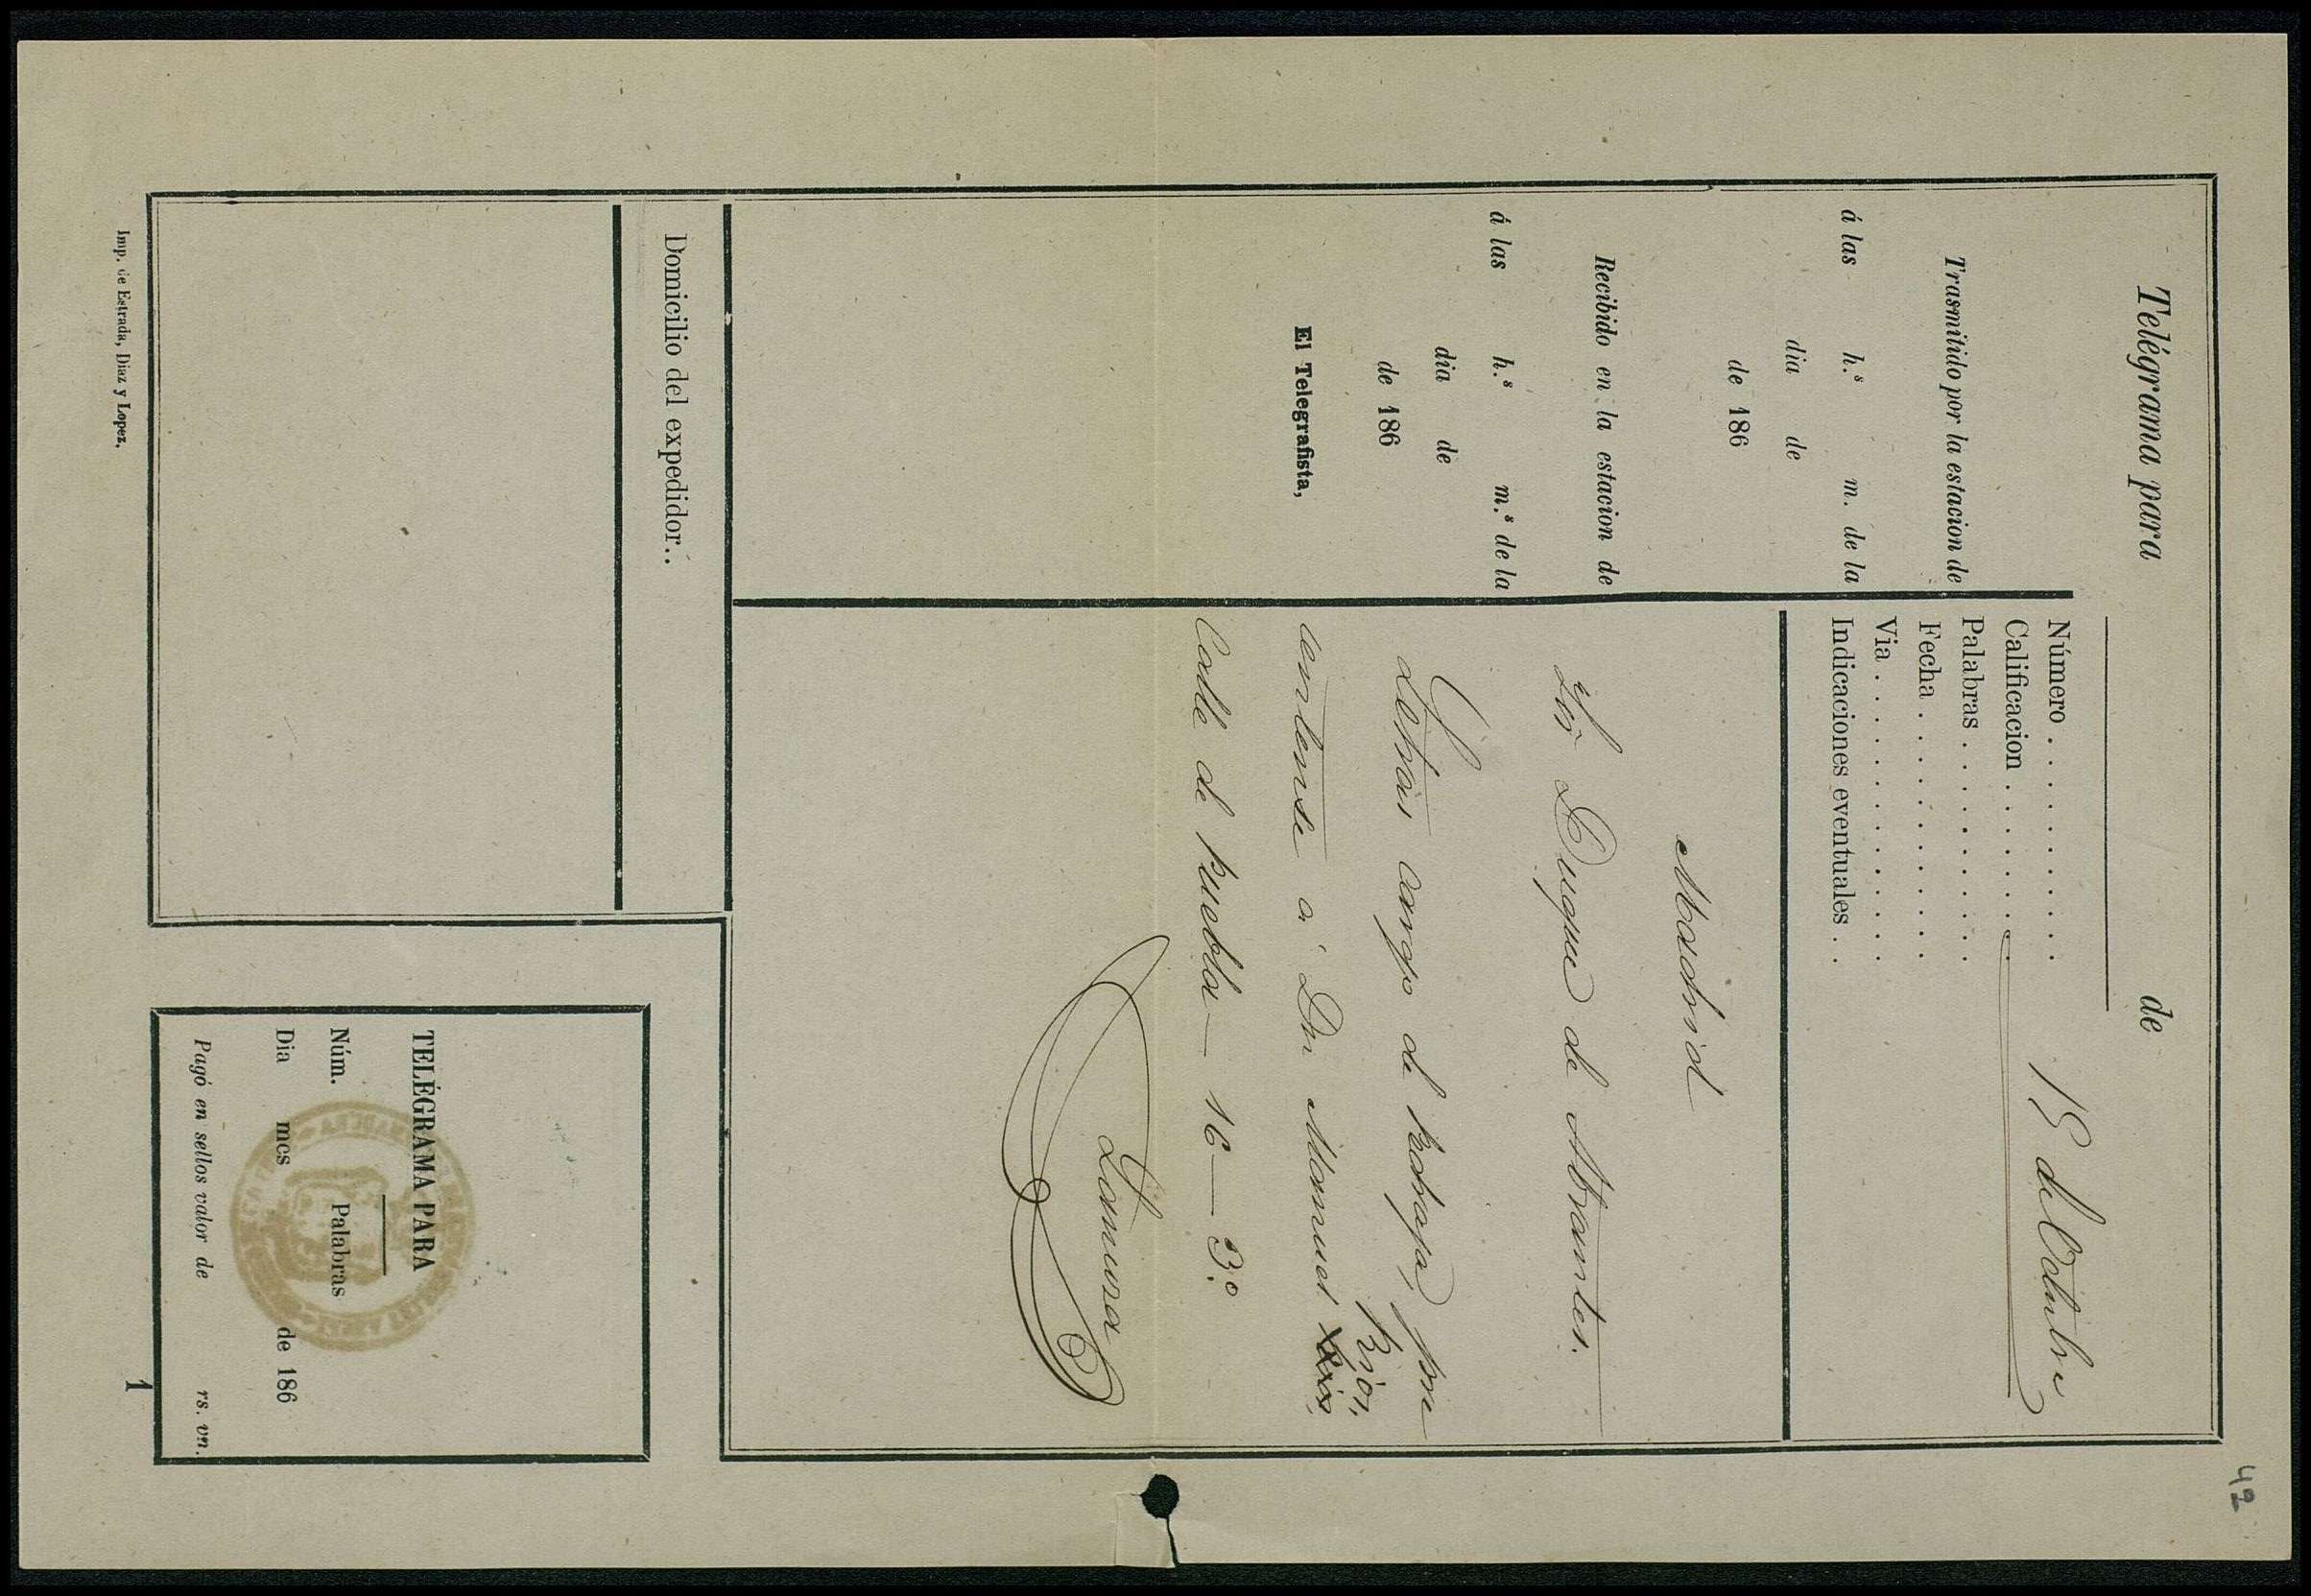 42
Telégrama para de
15 de Octubre
Número . . . . . . . . . .
Calificacion . . . . . . .
Palabras . . . . . . . . .
Fecha . . . . . . . . . .
Via . . . . . . . . . . . .
Indicaciones eventuales . .
Trasmitido por la estacion de
á las h.s m. de la
dia de
de 186
Recibido en la estacion de
á las h.s m.s de la
dia de
de 186
El Telegrafista,
Madrid
Duque de Abrantes.
Letras cargo de
á Dn Manuel Rios,
Calle de Puebla — 16 — 3.º
Zamora
Domicilio del expedidor. .
TELÉGRAMA PARA
Núm. Palabras
Dia mes de 186
Pagó en sellos valor de rs. vn.
Imp. de Estrada, Diaz y Lopez.
1